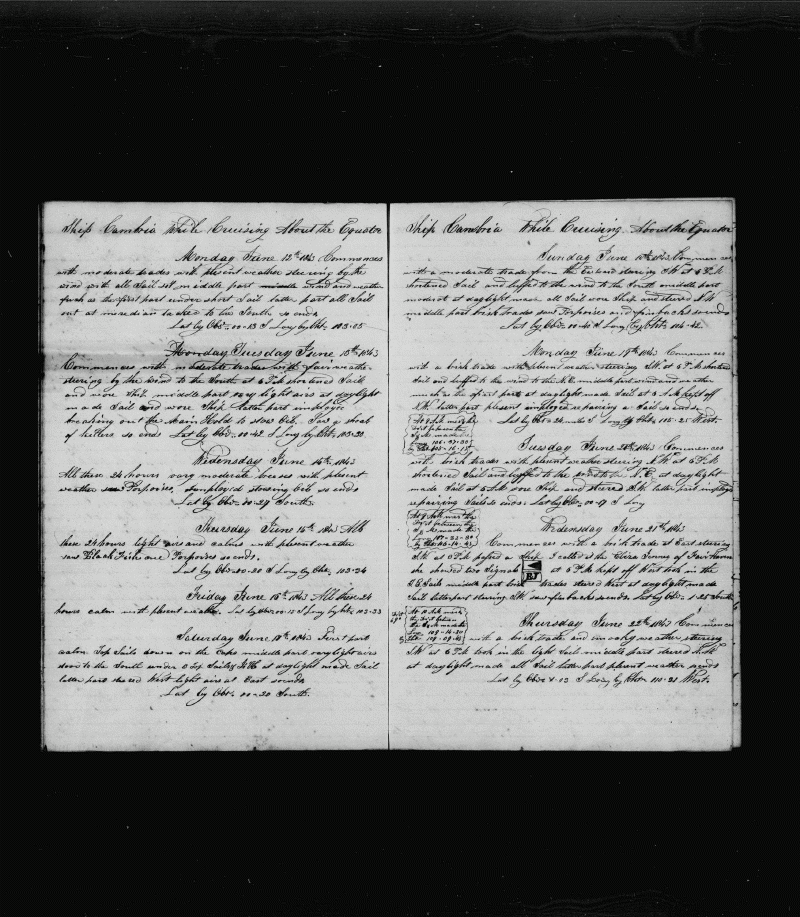 Ship Cambria While Cruising About the Equator
Monday June 12th 1843 Commences
with moderate trades with plesent weather steering by the
wind with all Sail set middle part wind and weather
fresh as the first part under short Sail latter part all Sail
out at meridian tacked to the South so ends
Lat by Obs - 00-13 S Long by Chr 103-05
Monday Tuesday June 13th 1843
Commences with moderate trades with fair weather
steering by the wind to the South at 6 P.M shortened Sail
and wore Ship middle part very light airs at daylight
made Sail and wore Ship latter part employed
breaking out the Main Hold to stow Oil. Saw a shoal
of killers so ends Lat by Obs - 00-42 S Long by Chr 103-20
Wedensday June 14th 1843
All these 24 hours very moderate breses with plesent
weather saw Porpoises, employed stowing Oil so ends
Lat by Obs - 00-29 South.
Thursday June 15th 1843 All
these 24 hours light airs and calms with plesent weather
saw Black Fish and Porpoises so ends.
Lat by Obs - 00-20 S Long by Chr 103-24
Friday June 16th 1843 All these 24
hours calm with plesent weather. Lat by Obs 00-15 S Long by Chr 103-33
Saturday June 17th 1843 First part
calm Top Sails down on the Caps middle part very light airs
stood to the South under Top Sails at daylight made Sail
latter part steered West light airs at East so ends
Lat by Obs. 00-30 South.
Ship Cambria While Cruising About the Equator
Sunday June 18th 1843 Commences
with a moderate trade from the Eastward steering S.W at 6 P.M
shortened Sail and luffed to the wind to the South middle part
moderate at daylight made all Sail wore Ship and steered S.W
middle part brisk trades saw Porpoises and finbacks so ends
Lat by Obs - 00-40 S Long by Chr 104-42
Monday June 19th 1843 Commences
with a brisk trade with plesent weather steering S.W at 6 P.M shortened
Sail and luffed to the wind to the N.E middle part wind and weather
much as the first part at daylight made Sail at 5 A.M kept off
S.W. latter part plesent employed repairing a Sail so ends
Lat by Obs - 24 miles S Long by Chr - 105-25 West.
Tuesday June 20th 1843 Commences
with brisk trades with plesent weather steering S.W at 6 P.M
shortened Sail and luffed to the wind to the N.E at daylight
made Sail at 5 A.M wore Ship and steered S.W latter part employed
repairing Sails so ends. Lat by Obs - 00-17 S Long
Wedensday June 21st 1843
Commences with a brisk trade at East steering
S.W at 6 P.M passed a Ship I called it the Eliza Jenney of Fairhaven
she showed two Signals at 6 P.M kept off West took in the
Sails middle part brisk trades steered West at daylight made
Sail latter part steering S.W. saw finbacks so ends. Lat by Obs - 1-25 South
Thursday June 22nd 1843 Commences
with a brisk trade and smoky weather steering
S.W at 6 P.M took in the light Sail middle part steered S.W
at daylight made all Sail latter part plesent weather so ends
Long by Chr 110-21 West.